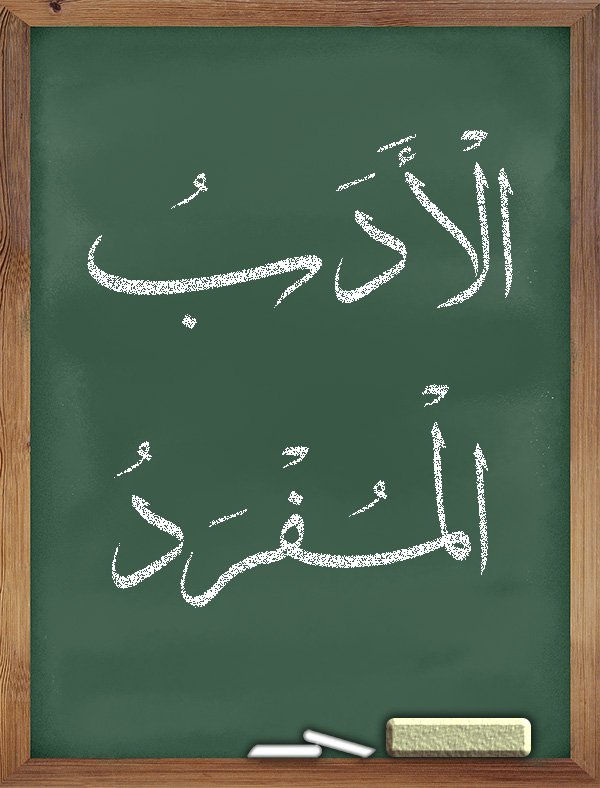 الْأَدَبُ
الْمُفْرَدُ